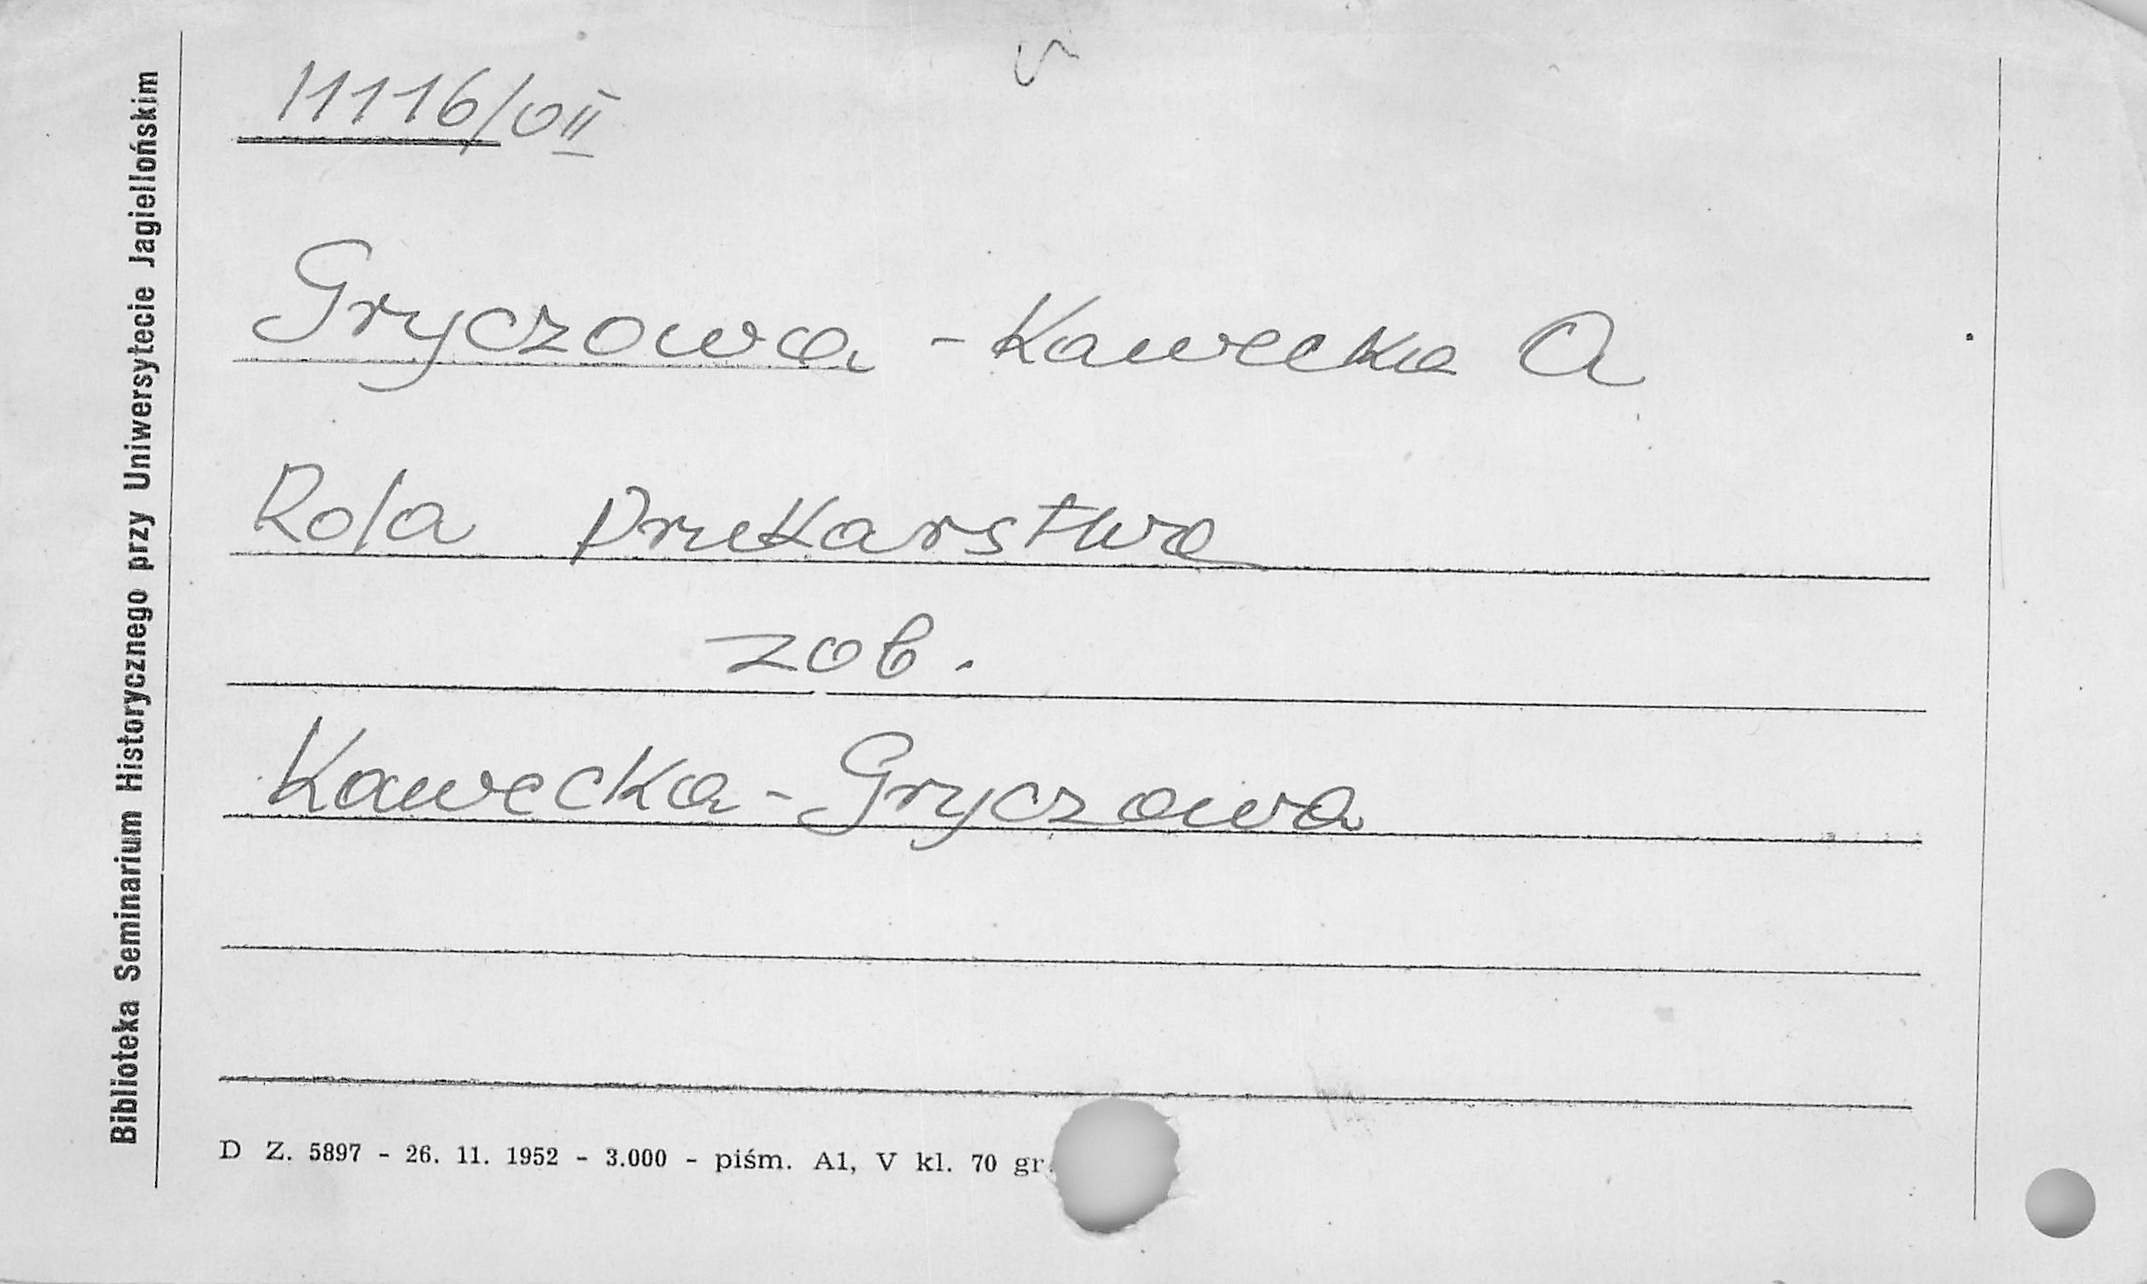 11116/VII
Gryczowa - Kawecka A
Rola Drukarstwa
zob.
Kawecka - Gryczowa
D Z. 5897 - 26. 11. 1952 - 3.000 - piśm. A1, V kl. 70 gr.
Biblioteka Seminarium Historycznego przy Uniwersytecie Jagiellońskim